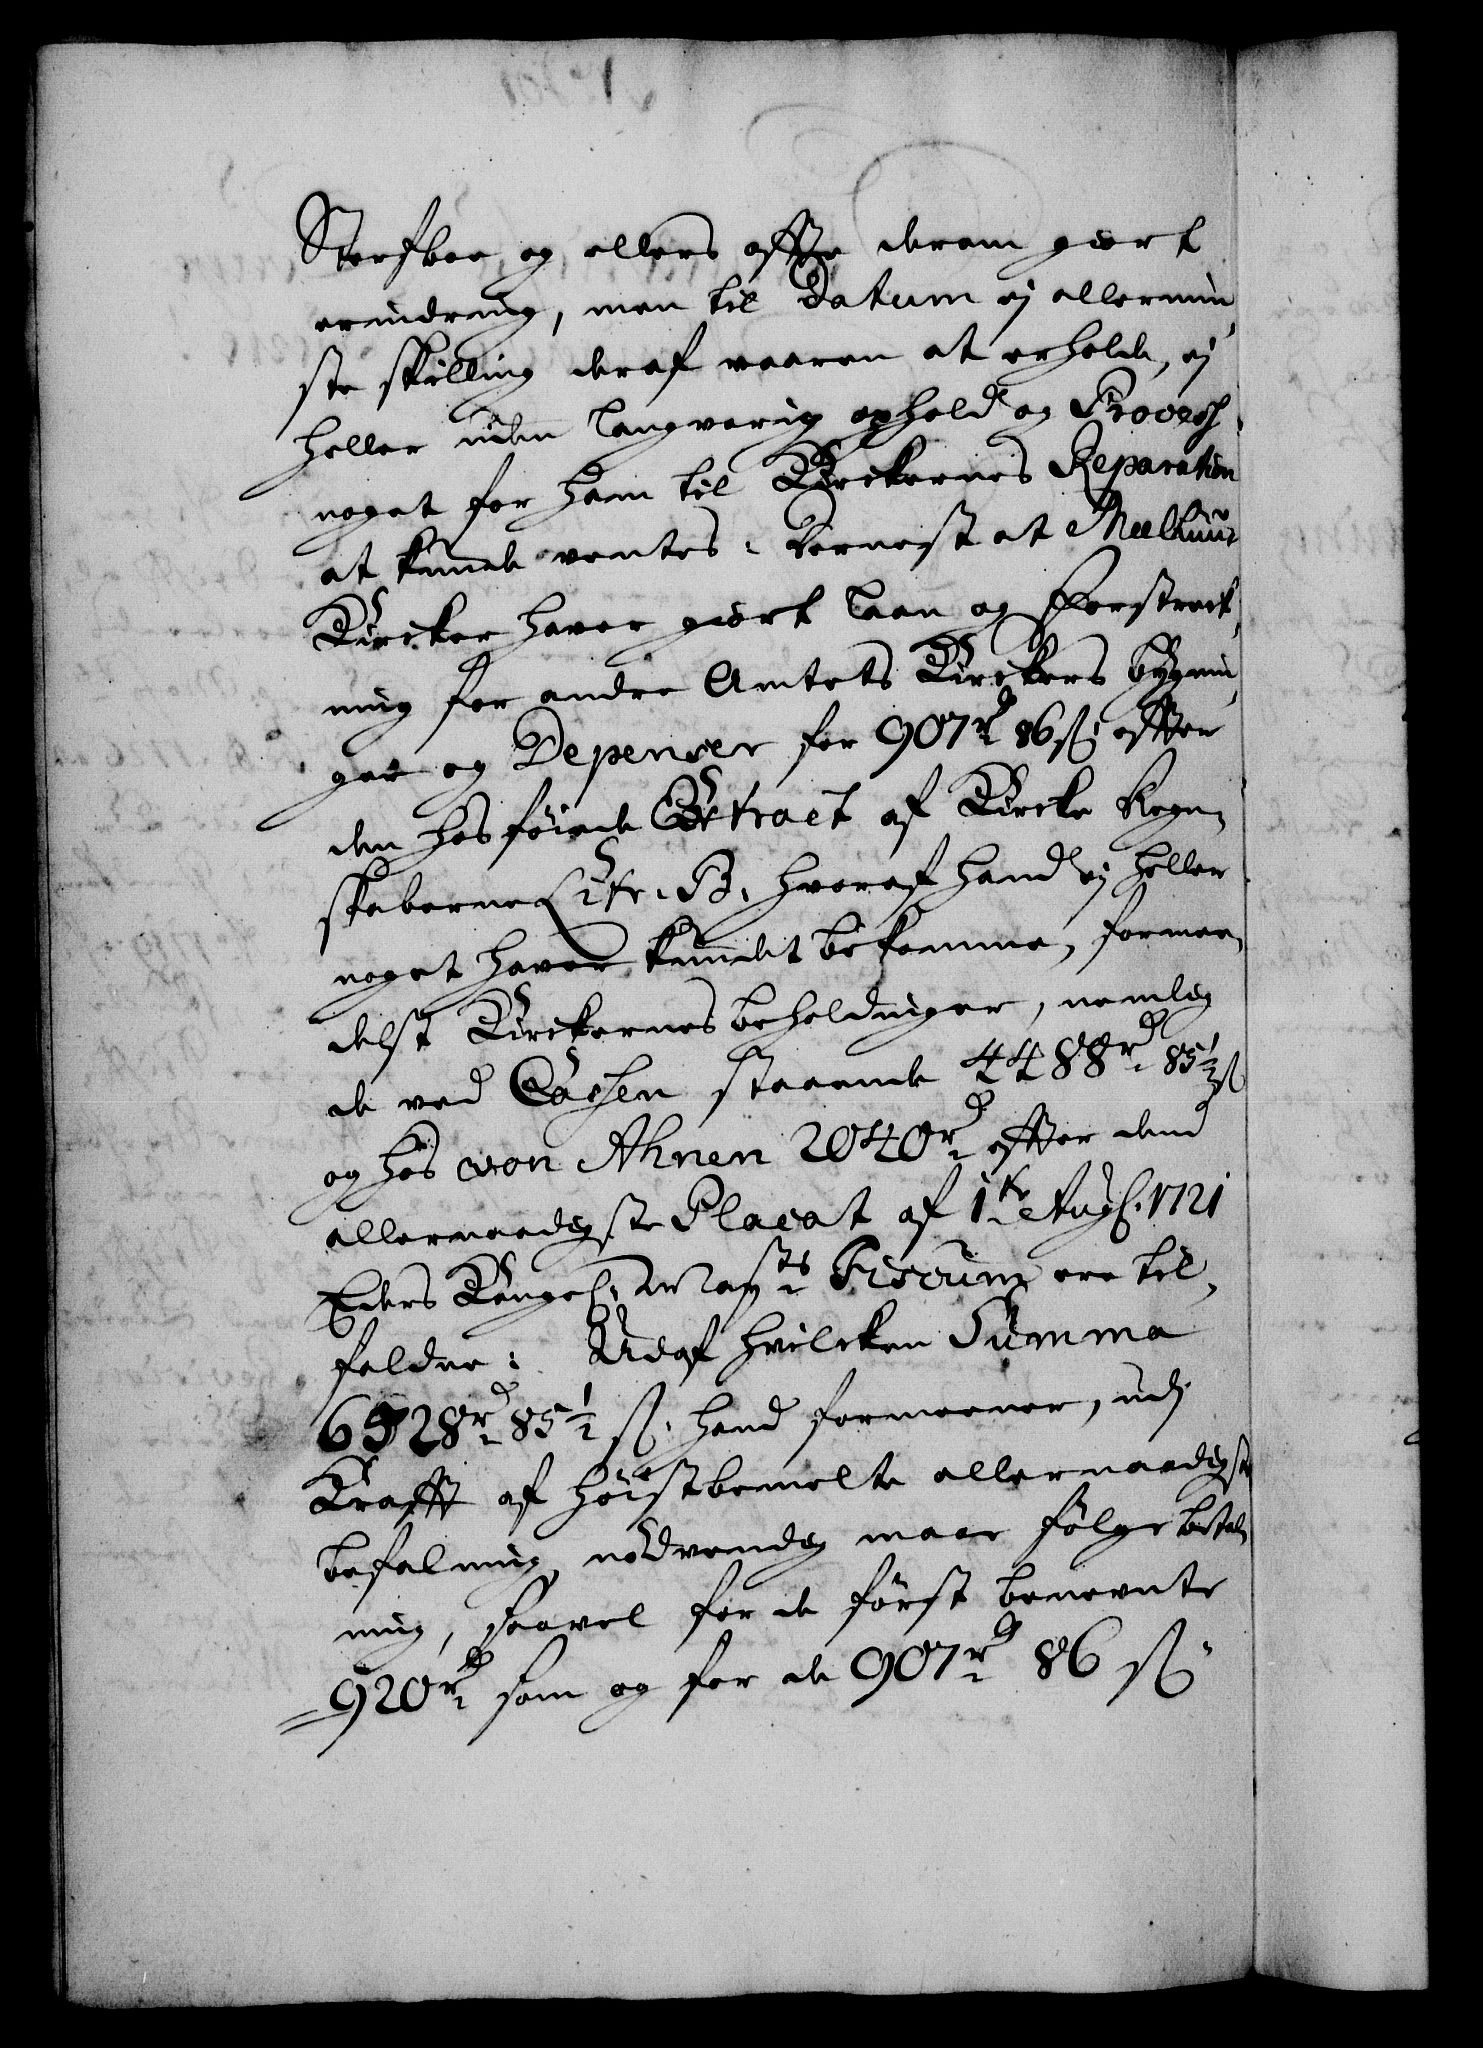 Sterfboe og ellers offte derom giort
erindring, men til Datum ej allermin¬
ste skilling deraf vaaren at erholde, ej
heller uden langvarig ophold og Process
noget for ham til Kirckernes Reparation
at kunde ventes: dernest at Meelhuus
Kircker haver giort laan og forstreck¬
ning for andre Amtets Kirckers bygnin¬
ger og Depencer for 907 rd 86 ß, effter
den hosföiede Extract af Kircke Regn¬
skaberne Litr. B. hvoraf hand ej heller
noget haver kundet bekomme, formee¬
delst Kirckernes beholdninger, nemlig
de ved Cassen staaende 4488 rd 85½ ß
og hos von Ahnen 2040 rd effter dend
allernaadigste Placat af 1te Aug. 1721
Eders Kongel: Maysts Fiscum ere til¬
faldne: Udaf hvilcken Summa
6528 rd 85½ ß. hand formeener, udj
Krafft af höistbemelte allernaadigste
befalning nödvendig maae fölge betal¬
ning, saavel for de först benevnte
920 rd som og for de 907 rd 86 ß.